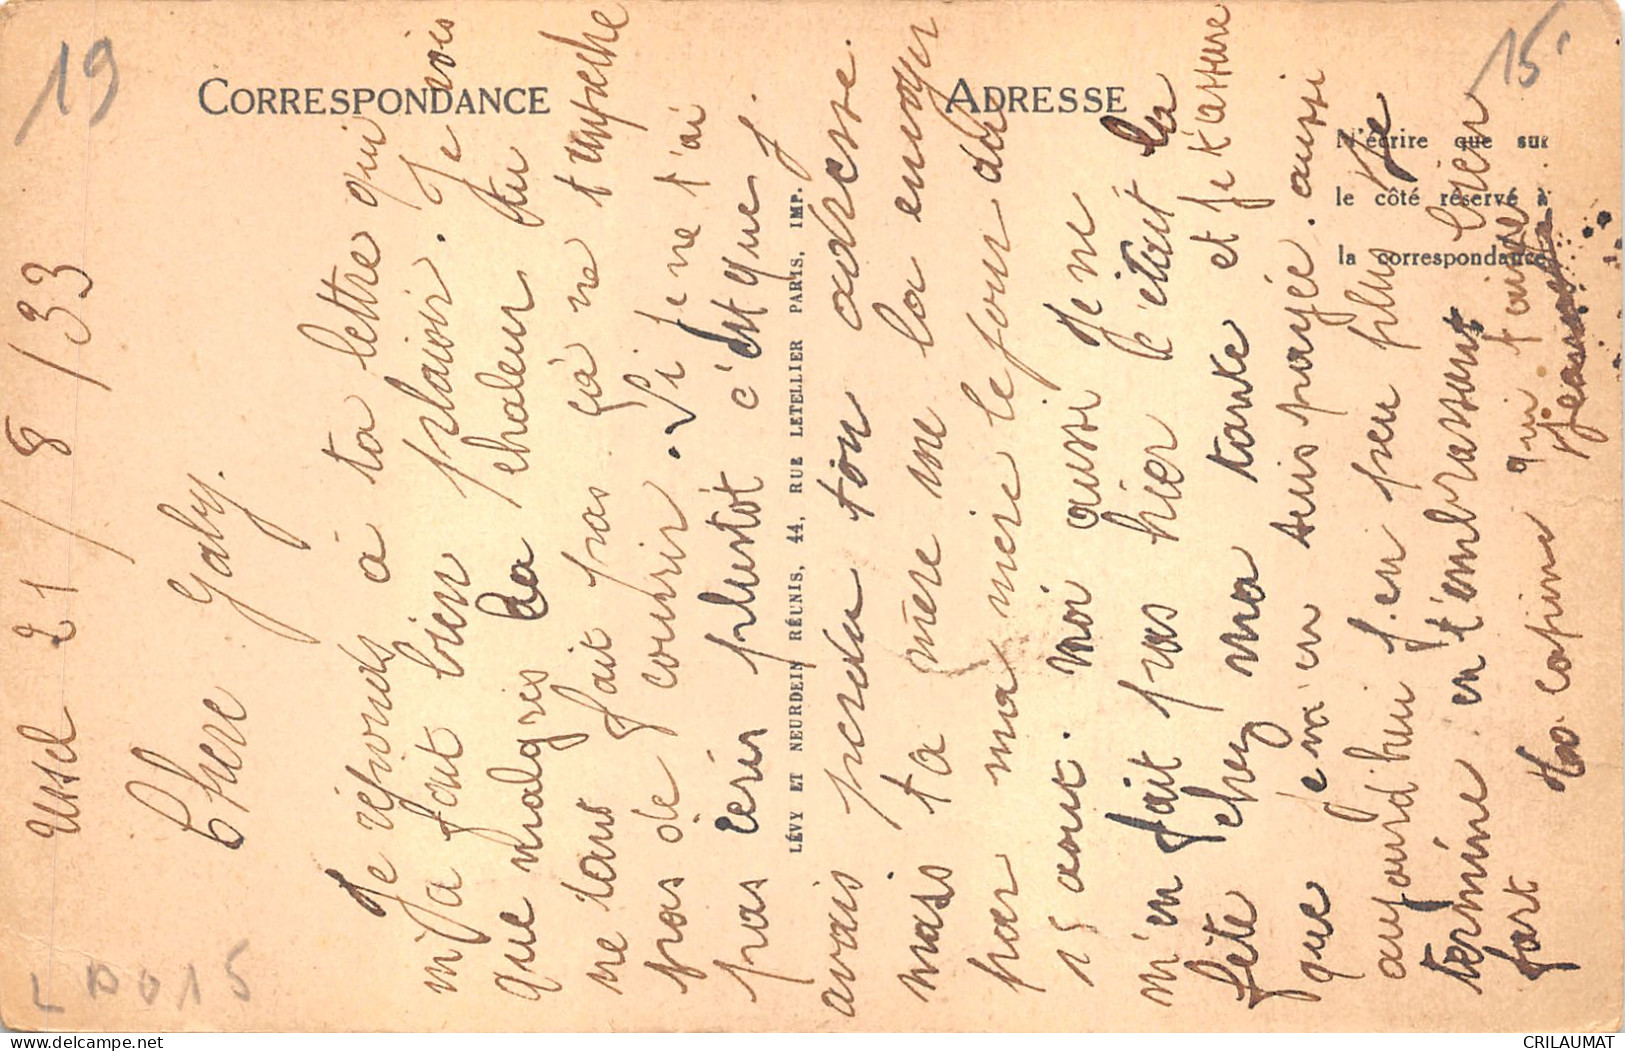 19
15
CORRESPONDANCE
ADRESSE
N'écrire que sur
le côté réservé à
la correspondance
LÉVY ET NEURDEIN RÉUNIS, 44, RUE LETELLIER PARIS, IMP.
Ussel 21/8/33
Chere Gaby.
Je réponds à ta lettre qui
m'a fait bien plaisir. Je vois
que malgres la chaleur tu
ne tant fait pas ça ne t'empeche
pas de courrir. Si je ne t'ai
pas ecrir plustôt c'est que j
avais perdu ton adresse.
mais ta mère me la envoyer
par ma mère le jour du
15 aout. moi aussi je ne
m'en fait pas hier c'était la
fête chez ma tante et je t'assure
que j'en m'en suis payée. aussi
aujourd'hui j'en peu plus Je
termine en t'embrassant bien
fort ta copine qui t'aime
Jeannette
L D015
CRILAUMAT